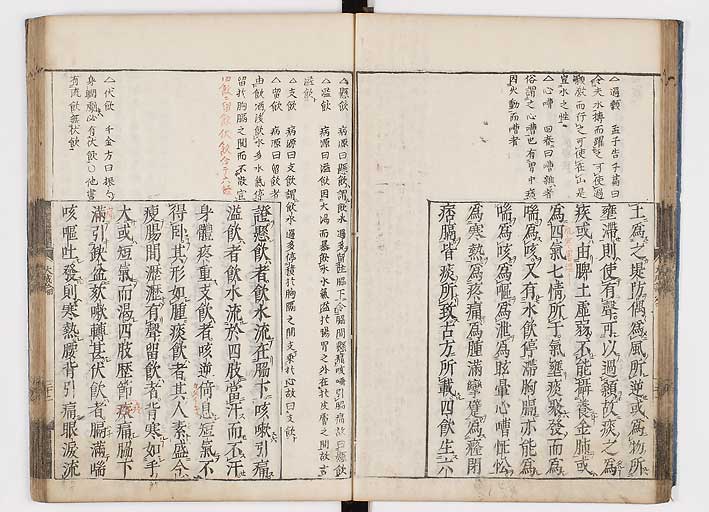 △過顙　孟子告子篇曰
今夫水搏而躍之可使過
顙激而行之可使在山是
豈水之性
△心嘈　回春曰嘈雜者
俗謂之心嘈也有胃中痰
因火動而嘈者
土為之堤防偶為風所逆或為物所
壅滯則使有聲可以過顙故痰之為
疾或由脾土虛弱不能養金肺或
為四氣七情所干氣壅痰聚發而為
喘為咳又有水飲停滯胸膈亦能為
喘為咳為嘔為泄為眩暈心嘈怔忪
為寒熱為疼痛為腫滿攣躄為癃閉
痞膈皆痰所致古方所載四飲生六
△懸飲　病源曰懸飲謂飲水過多留注脇下令脇間懸痛咳唾引脇痛故曰懸飲
△溢飲　病源曰溢飲因大渴而暴飲水水氣溢於腸胃之外在於皮膚之間故言
溢飲
△支飲　病源曰支飲謂飲水過多停積於胸膈之間支乗於心故曰支飲
△留飲　病源曰留飲者
由飲酒後飲水多水氣停
留於胸膈之間而不散宣
四飲ニ留飲伏飲合
△伏飲　千金方曰
身瞤劇必有伏飲○他書
有流飲無伏飲
證懸飲者飲水流在脇下咳嗽引痛
溢飲者飲水流於四肢當汗而不汗
身體疼重支飲者咳逆倚息短氣不
得臥其形如腫痰飲者其人素盛今
瘦腸間瀝瀝有聲留飲者背寒如手
大或短氣而渴四肢歷節疼痛脇下
滿引缺盆欬嗽轉甚伏飲者膈滿喘
咳嘔吐發則寒熱腰背引痛眼淚流